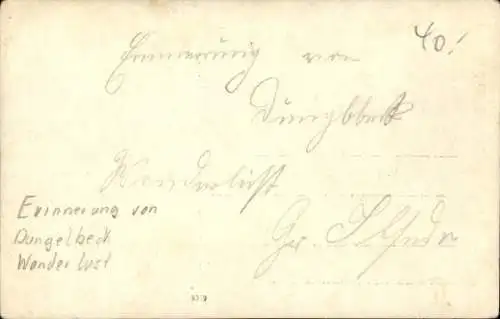 40.!
Erinnerung von
Dungelbeck
Wanderlust
Gr. Ilsede
Erinnerung von
Dungelbeck
Wander lust